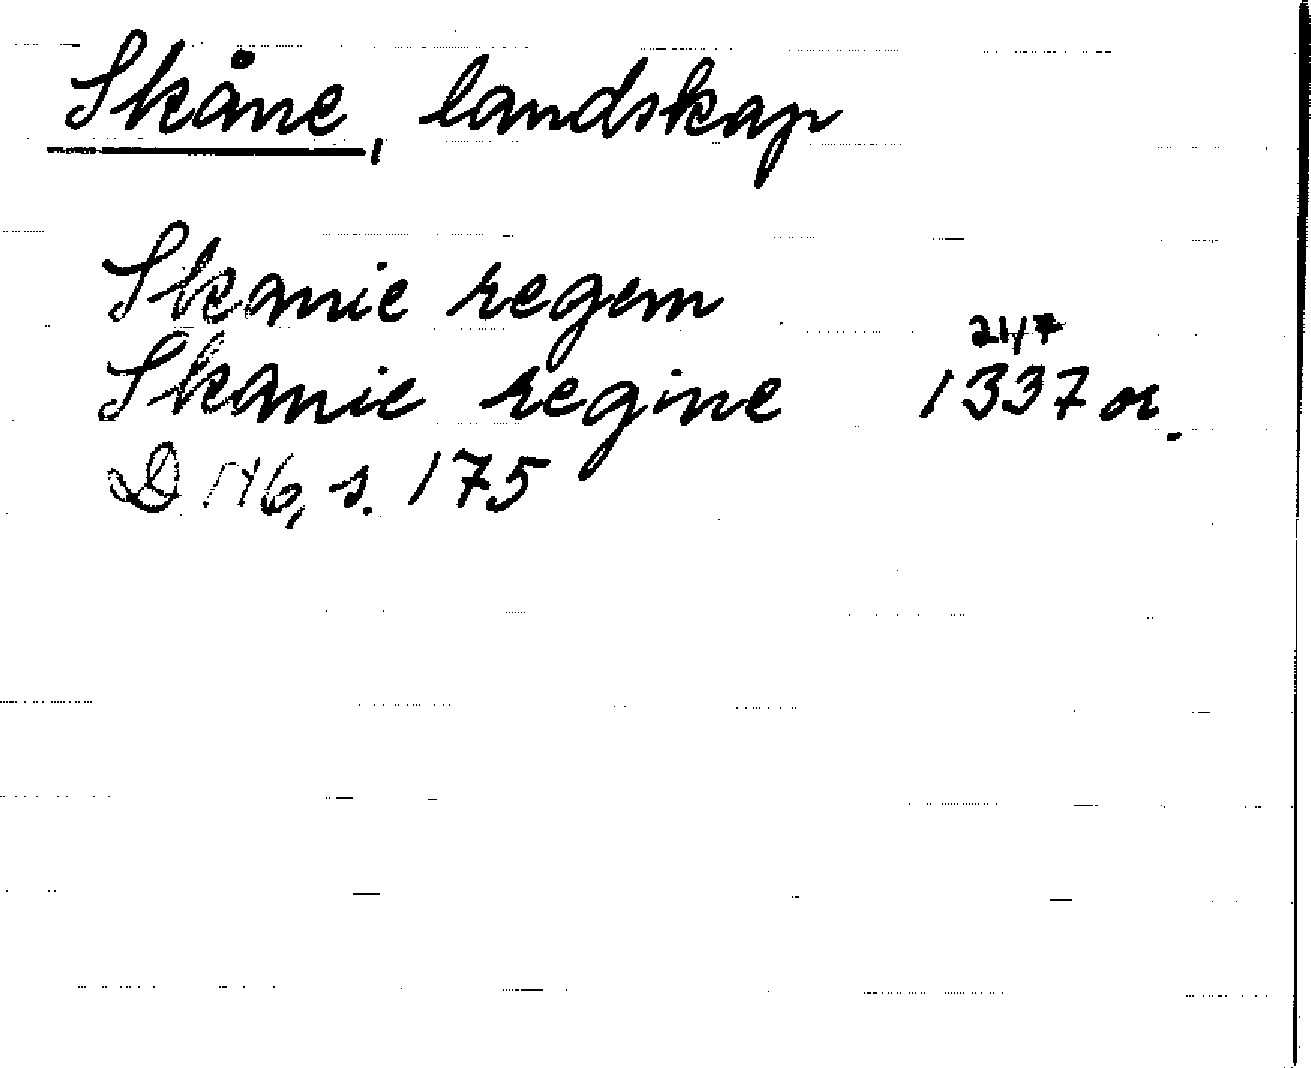 Skåne, landskap
Skanie regem
21/7
Skanie regine 1337 or.
D 146, s. 175